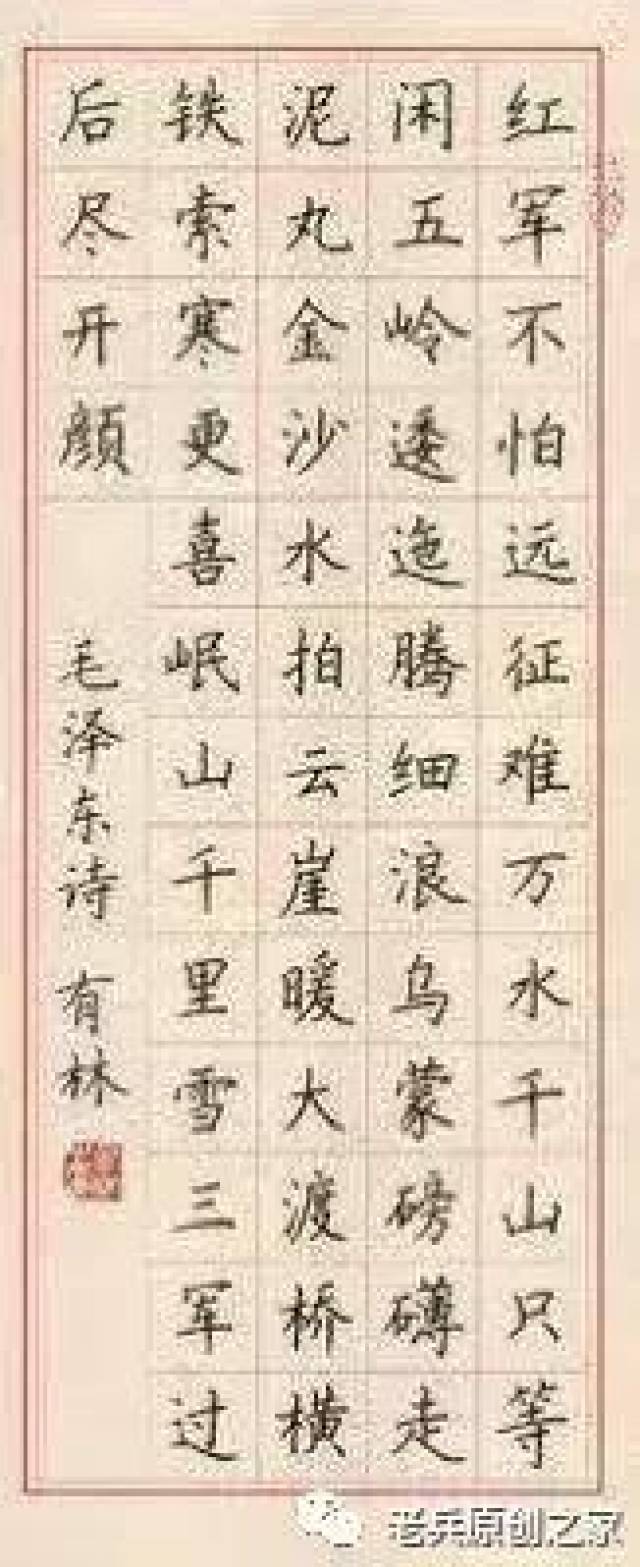 红军不怕远征难万水千山只等
闲五岭逶迤腾细浪乌蒙磅礴走
泥丸金沙水拍云崖暖大渡桥横
铁索寒更喜岷山千里雪三军过
后尽开颜
毛泽东诗 有林
老兵原创之家